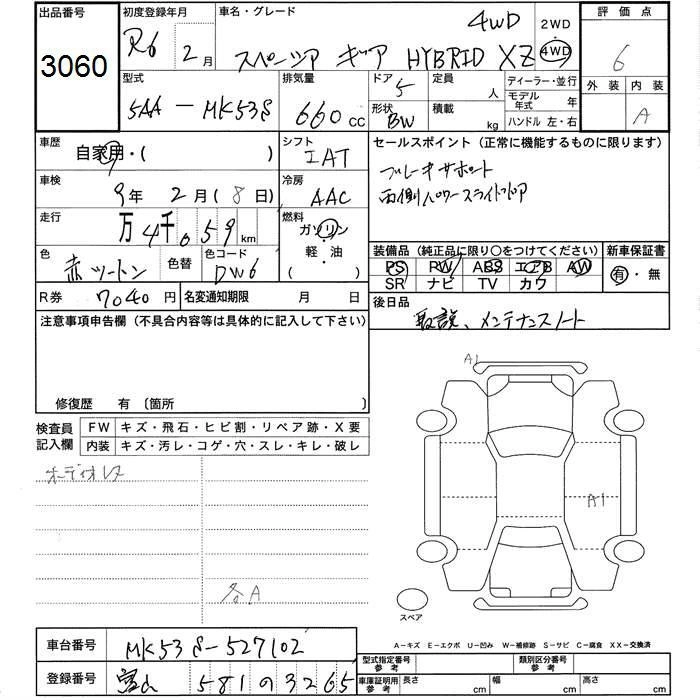 出品番号 初度登録年月 車名・グレード 4WD 2WD 評価点
3060 R6年 2月 スペーシア ギア HYBRID XZ 4WD 6
型式 排気量 ドア 5 定員 人 ディーラー・並行 外装 内装
5AA-MK53S 660cc 形状 BW 積載 kg モデル年式 年 A
ハンドル 左・右
車歴 自家用・( ) シフト IAT セールスポイント(正常に機能するものに限ります)
車検 9年 2月(8日) 冷房 AAC ブレーキサポート
両側パワースライドドア
走行 万4千059km 燃料 ガソリン
軽・油
( )
色 赤ツートン 色替 色コード DW6
装備品(純正品に限り〇をつけてください) 新車保証書
PS PW ABS エアB AW 有・無
SR ナビ TV カワ
R券 7040円 名変通知期限 月 日 後日品
取説、メンテナンスノート
注意事項申告欄(不具合内容等は具体的に記入して下さい)
修復歴 有〔箇所 〕
検査員記入欄 FW キズ・飛石・ヒビ割・リペア跡・X要
内装 キズ・汚レ・コゲ・穴・スレ・キレ・破レ
オーディオレス
各A
A1
A1
スペア
A-キズ E-エクボ U-凹み W-補修跡 S-サビ C-腐食 XX-交換済
車台番号 MK53S-527102
型式指定番号 参考 類別区分番号 参考
登録番号 富山 581 の 3265
車庫証明用 参考 長さ cm 幅 cm 高さ cm